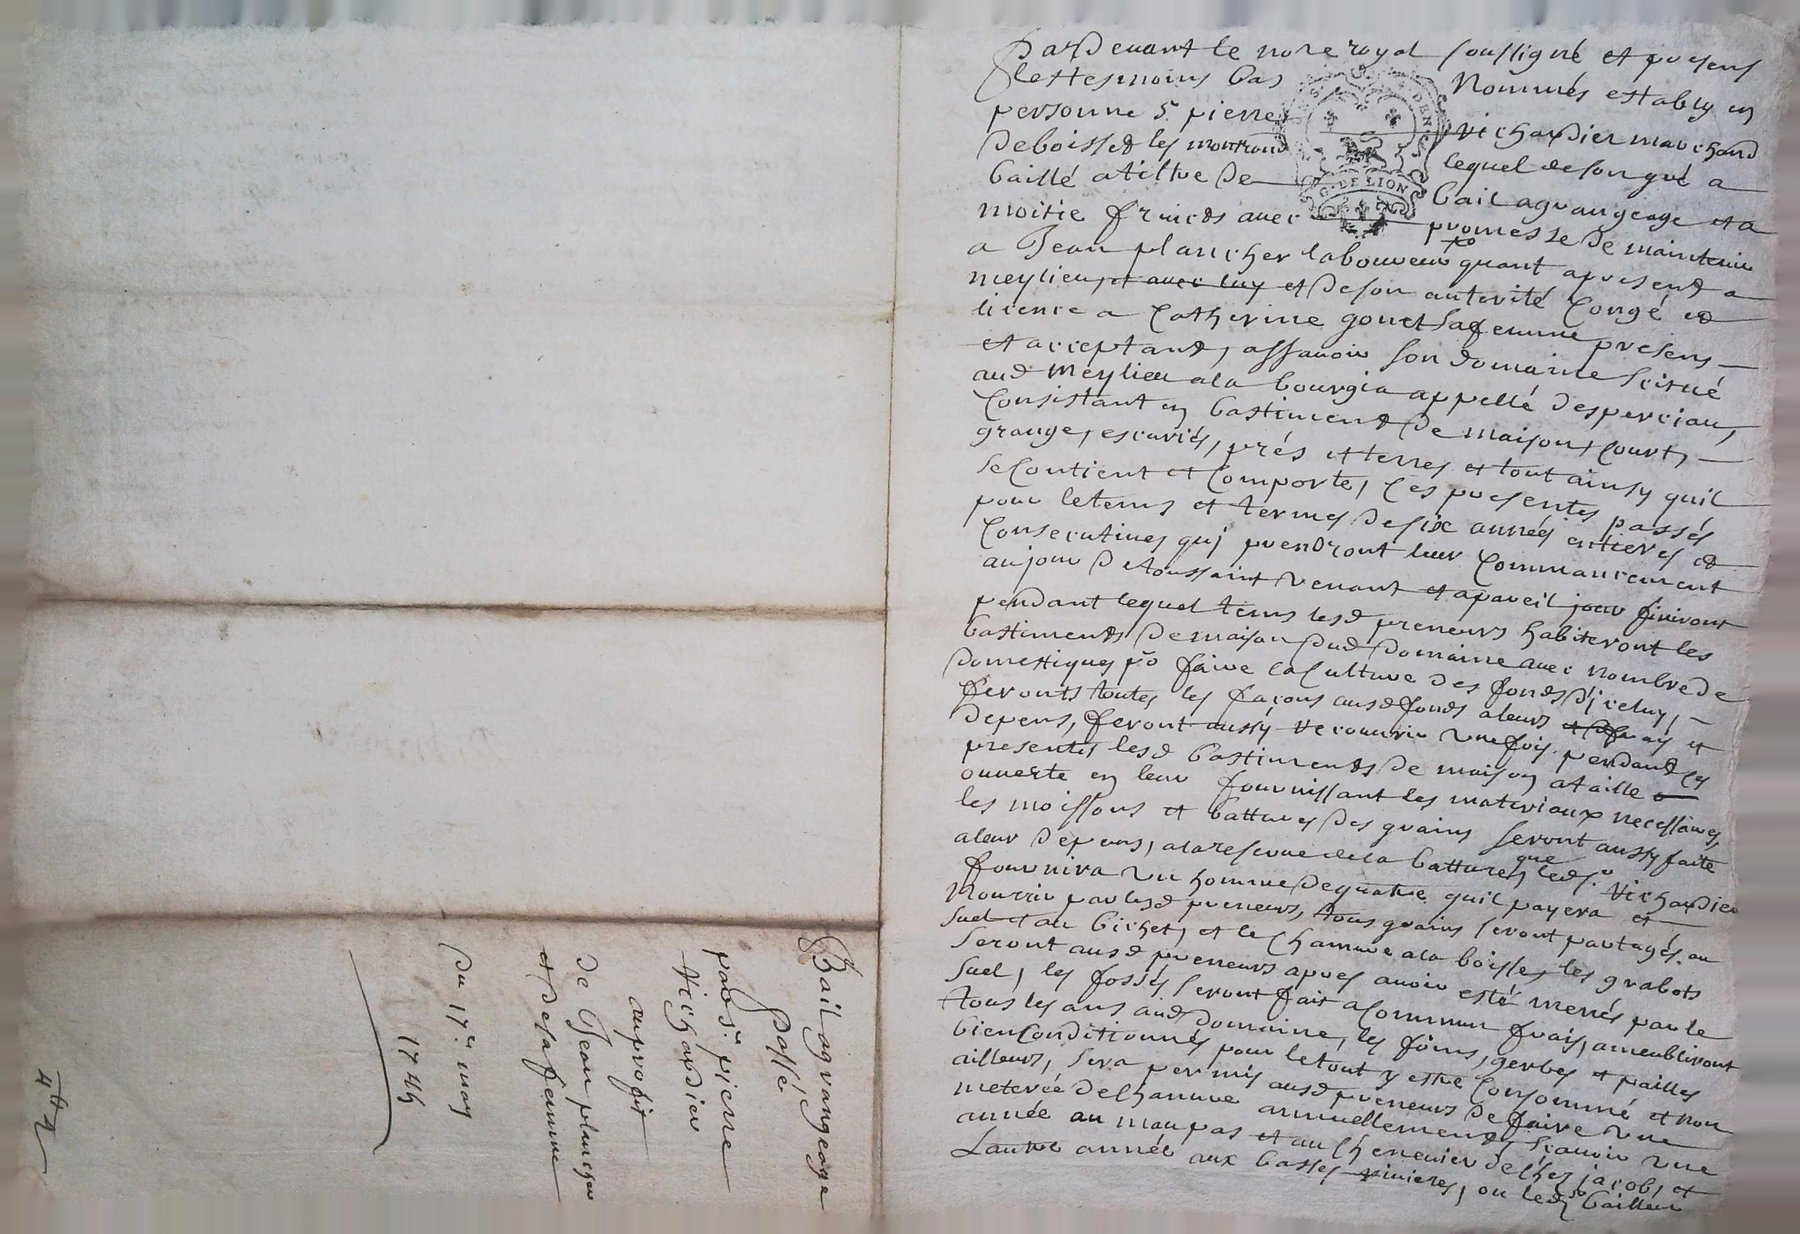 Pardevant le no.re royal soussigné et presens
les tesmoins bas Nommés estably en
personne s.r pierre Vichardier marchand
de boisset les montrond lequel de son gré a
baillé a tiltre de bail a grangeage et a
moitie fruicts avec promesse de maintenir
a Jean plancher laboureur quant a present a
meylieu, et avec luy et de son autorité Congé et
licence a Catherine gonet sa femme presens
et acceptants, assavoir son domaine scitué
aud meylieu a la bourgia appellé desperciau,
Consistant en bastiment de maison, Court,
grange, escuries, prés et terres et tout ainsy quil
se Contient et Comporte, Ces presentes passés
pour le tems et termes de six années entieres et
Consecutives quj prendront leur Commancement
au jour de toussaint venant et a pareil jour finiront
pendant lequel tems lesd preneurs habiteront les
bastiments de maison dud domaine avec nombre de
domestiques po faire la Culture des fonds d'iceluy,
feronts toutes les façons ausd fonds a leurs et
depens, feront aussy recouvrir une fois pendant Ces
presentes lesd bastiments de maison a taille
ouverte en leur fournissant les materiaux necessaires,
les moissons et battures des grains seront aussy faite
a leur depens, a la reserve de la batture, que led s.r Vichardier
fournira un homme de quatre quil payera et
Nourrir par lesd preneurs, tous grains seront partagés au
suel et au bichet, et le Chanvre a la boisse, les grabots
seront ausd preneurs apres avoir esté menés par le
suel, les fossés seront fait a Commun frais, ameubliront
tous les ans aud domaine, les foins, gerbes et pailles
bien Conditionnés pour le tout y estre Consommé et non
ailleurs, sera permis ausd preneurs de faire une
meterée de chanvre annuellement, scavoir une
année au maupas et au Chenevier de chez jacob, et
Lautre année aux basses rivieres, ou led s.r bailleur
Bail a grangeage
Passé
par s.r pierre
Vichardier
au profit
de Jean plancher
et de sa femme
du 17.e may
1745
G. DE LION